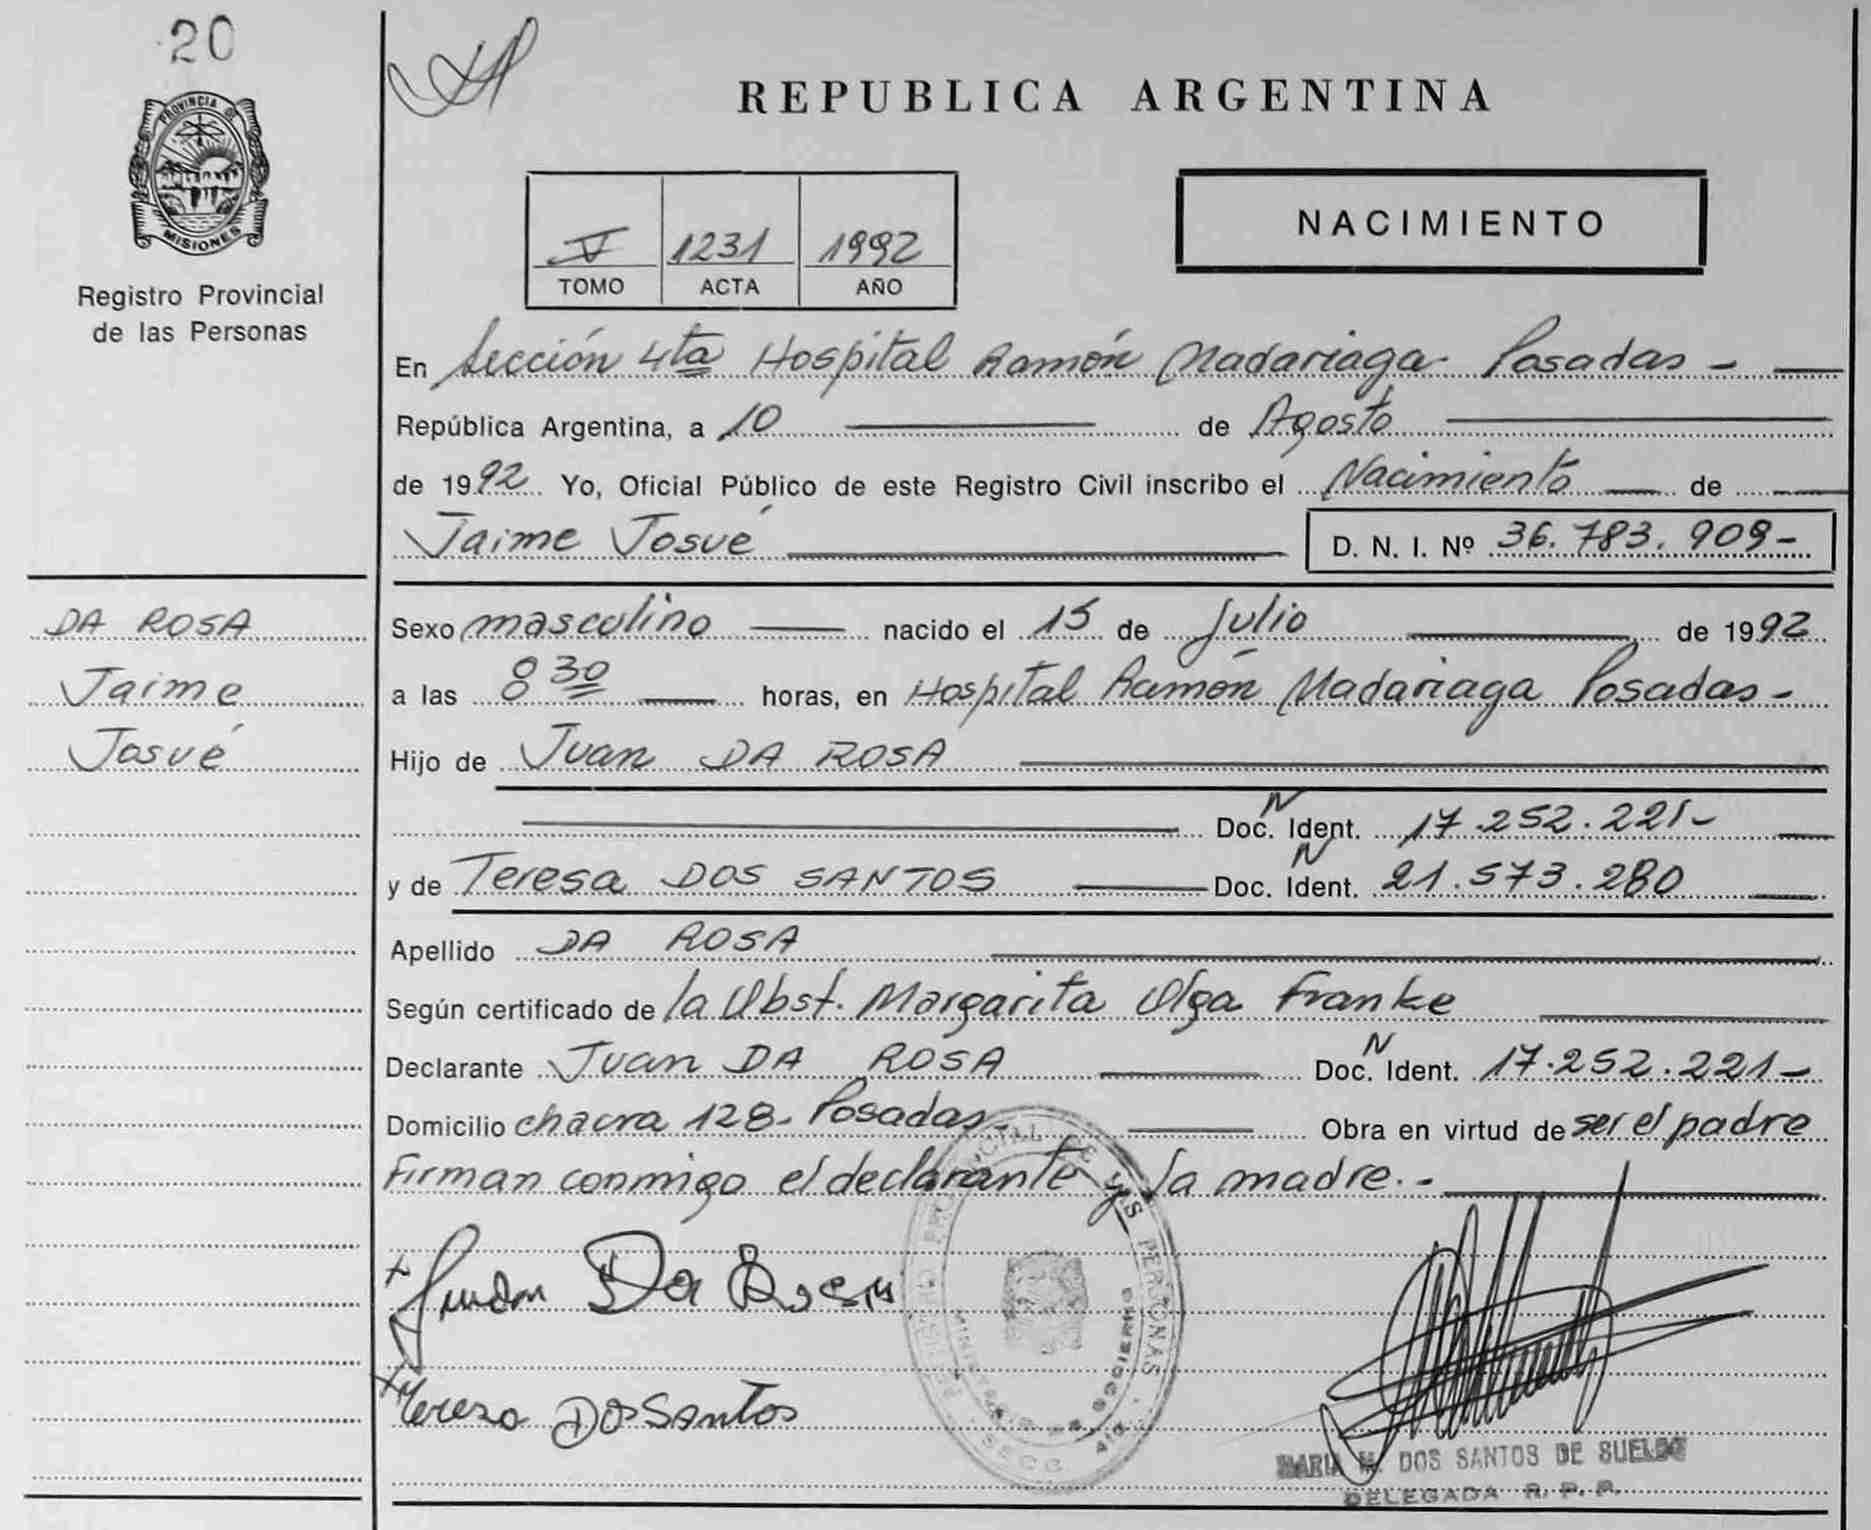 20
PROVINCIA DE
MISIONES
Registro Provincial
de las Personas
REPUBLICA ARGENTINA
V 1231 1992
TOMO ACTA AÑO
NACIMIENTO
En Sección 4ta Hospital Ramón Madariaga Posadas -
República Argentina, a 10 de Agosto
de 1992 Yo, Oficial Público de este Registro Civil inscribo el Nacimiento de
Jaime Josué D. N. I. Nº 36.783.909-
DA ROSA
Jaime
Josué
Sexo masculino nacido el 15 de Julio de 1992
a las 8 30 horas, en Hospital Ramón Madariaga Posadas-
Hijo de Juan DA ROSA
Doc. N Ident. 17.252.221-
y de Teresa DOS SANTOS Doc. N Ident. 21.573.280
Apellido DA ROSA
Según certificado de la Obst. Margarita Olga Franke
Declarante Juan DA ROSA Doc. N Ident. 17.252.221-
Domicilio chacra 128- Posadas- Obra en virtud de ser el padre
Firman conmigo el declarante y la madre.-
Juan Da Rosa
Teresa DOS SAntos
REGISTRO PROVINCIAL DE LAS PERSONAS
MARIA M. DOS SANTOS DE SUELDO
DELEGADA R. P. P.